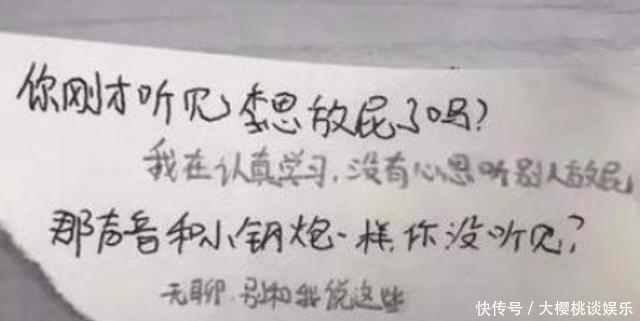 你刚才听见李思放屁了吗?
我在认真学习,没有心思听别人放屁
那声音和小钢炮一样你没听见?
无聊.别和我说这些
快传号/大樱桃谈娱乐